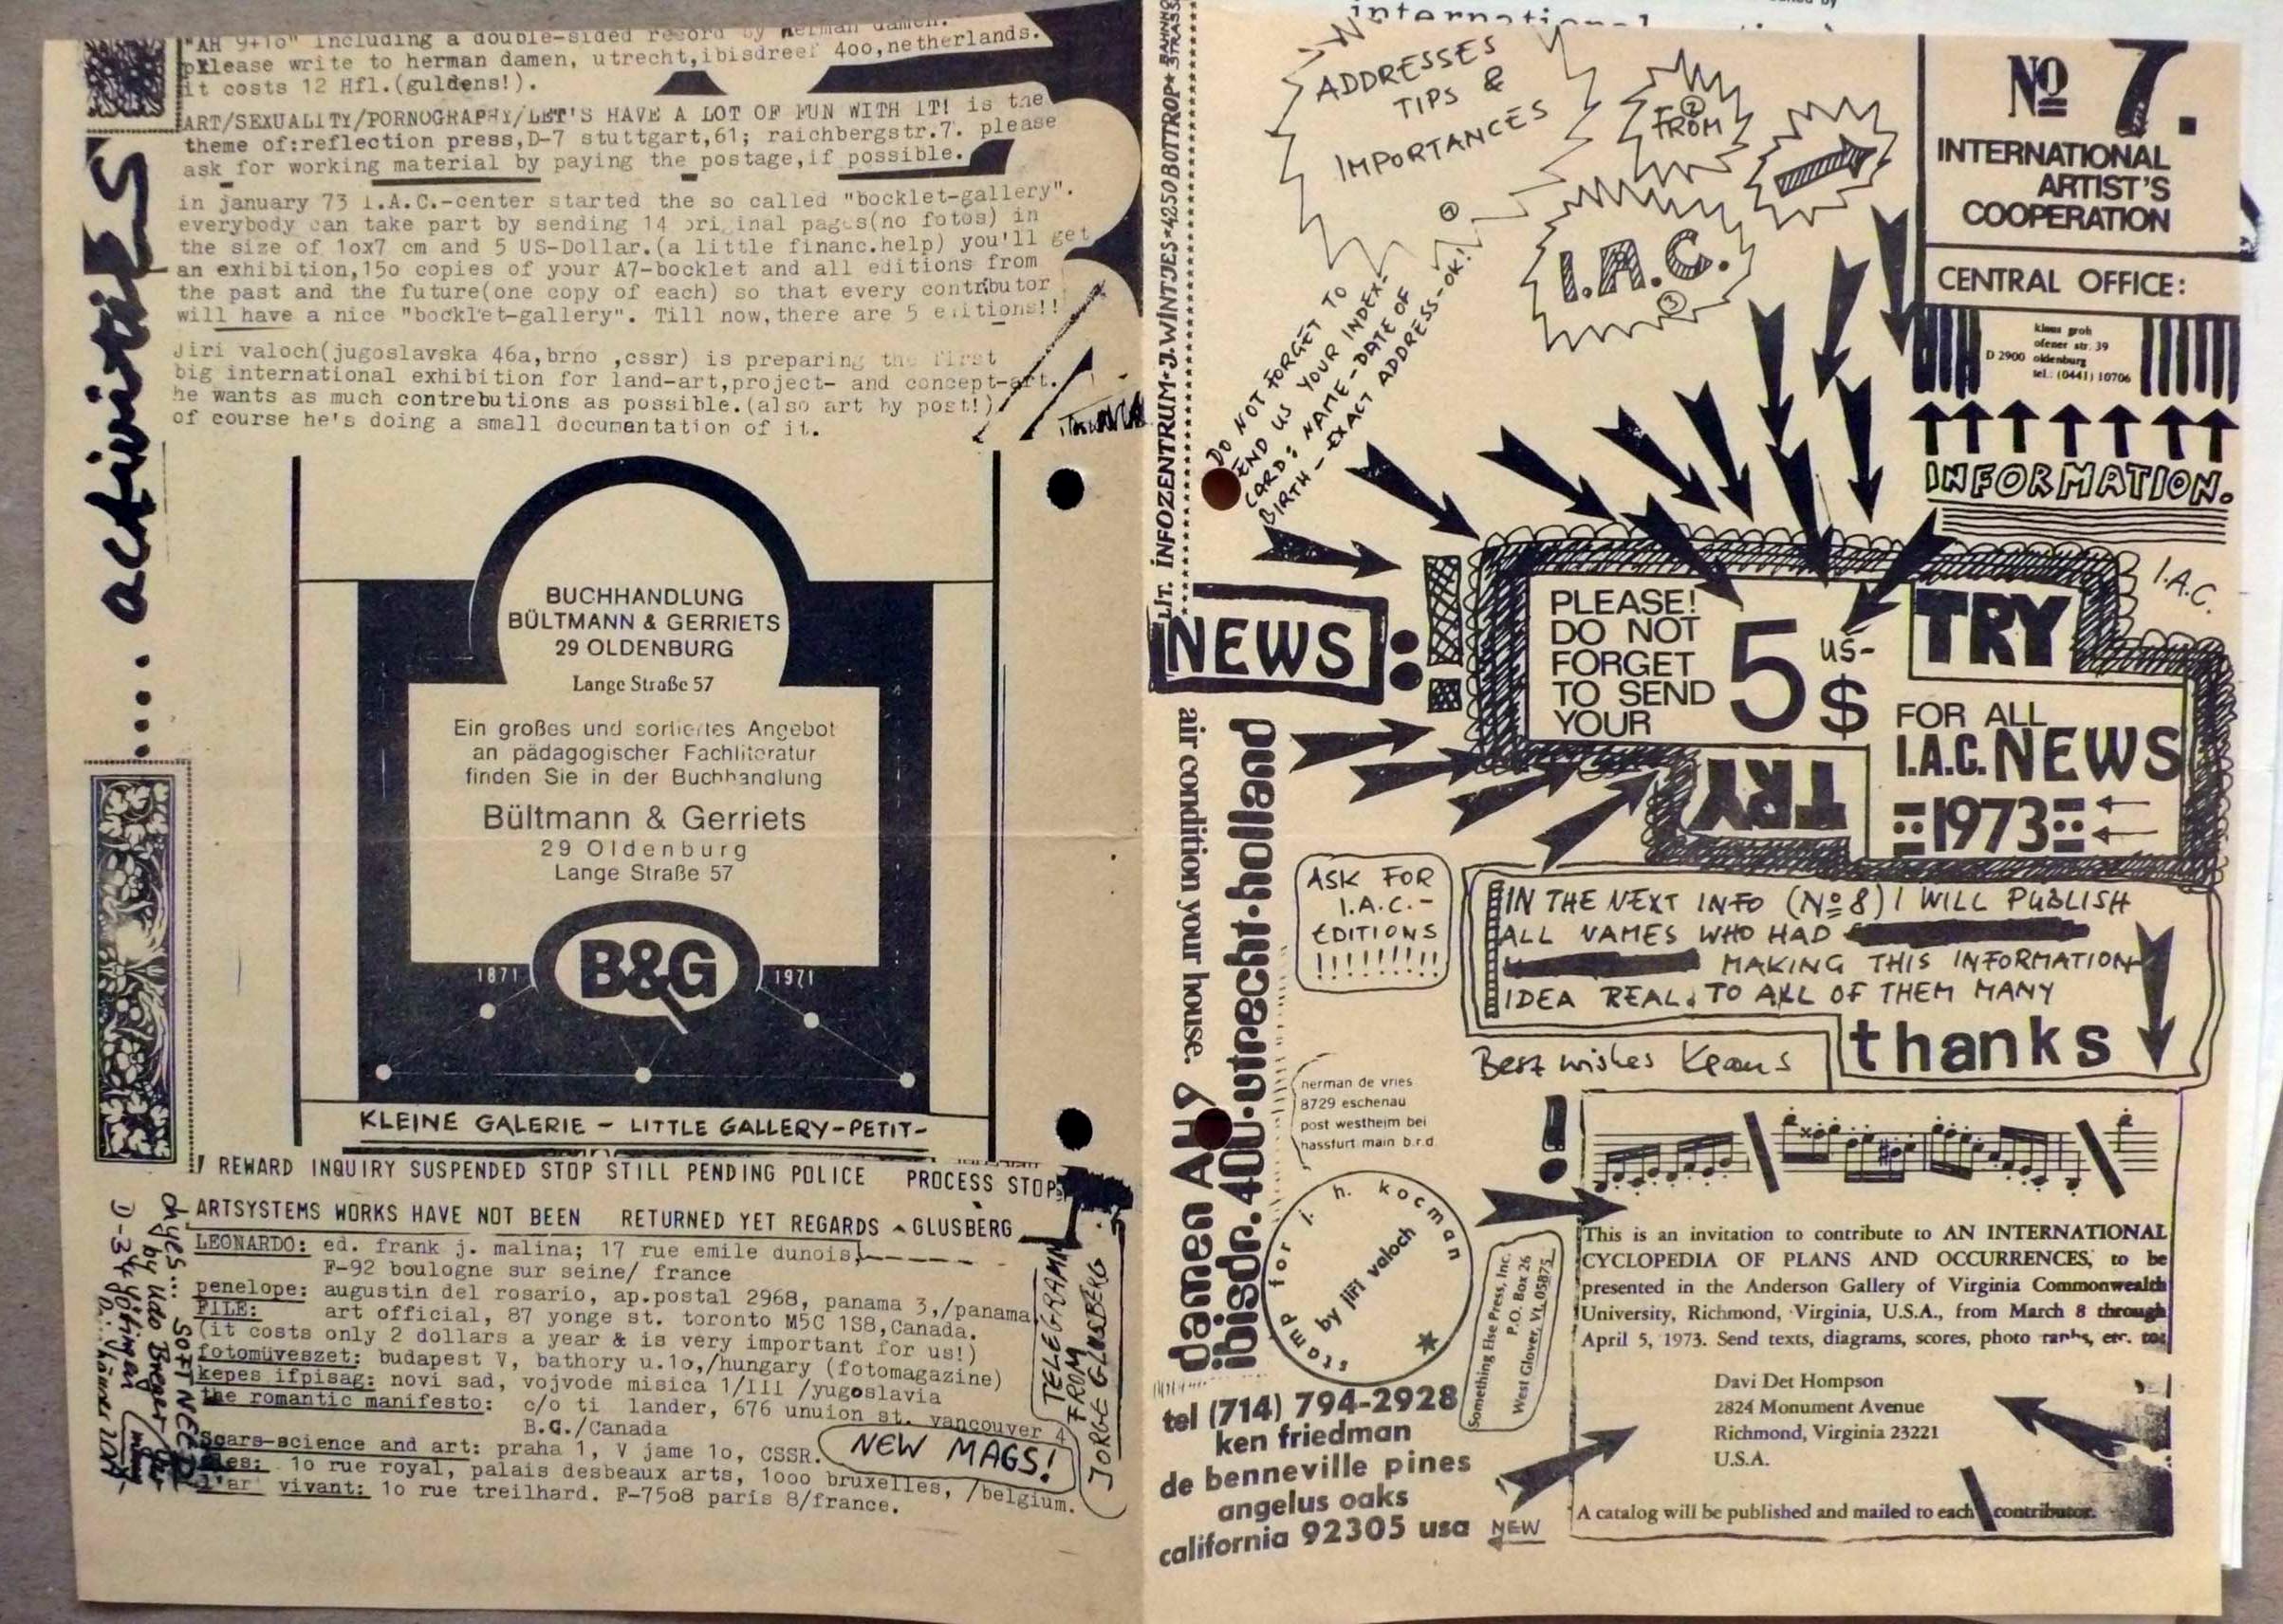 "AH 9+1o" including a double-sided record by herman damen.
please write to herman damen, utrecht,ibisdreef 4oo,netherlands.
it costs 12 Hfl.(guldens!).
ART/SEXUALITY/PORNOGRAPHY/LET'S HAVE A LOT OF FUN WITH IT! is the
theme of:reflection press,D-7 stuttgart,61; raichbergstr.7. please
ask for working material by paying the postage,if possible.
in january 73 I.A.C.-center started the so called "bocklet-gallery".
everybody can take part by sending 14 original pages(no fotos) in
the size of 1ox7 cm and 5 US-Dollar.(a little financ.help) you'll get
an exhibition,15o copies of your A7-booklet and all editions from
the past and the future(one copy of each) so that every contributor
will have a nice "bocklet-gallery". Till now,there are 5 editions!!
Jiri valoch(jugoslavska 46a,brno ,cssr) is preparing the first
big international exhibition for land-art,project- and concept-art.
he wants as much contrebutions as possible.(also art by post!)
of course he's doing a small documentation of it.
activities
BUCHHANDLUNG
BÜLTMANN & GERRIETS
29 OLDENBURG
Lange Straße 57
Ein großes und sortiertes Angebot
an pädagogischer Fachliteratur
finden Sie in der Buchhandlung
Bültmann & Gerriets
29 Oldenburg
Lange Straße 57
1871 B&G 1971
KLEINE GALERIE - LITTLE GALLERY-PETIT-
REWARD INQUIRY SUSPENDED STOP STILL PENDING POLICE PROCESS STOP
ARTSYSTEMS WORKS HAVE NOT BEEN RETURNED YET REGARDS GLUSBERG
LEONARDO: ed. frank j. malina; 17 rue emile dunois,
F-92 boulogne sur seine/ france
penelope: augustin del rosario, ap.postal 2968, panama 3,/panama
FILE: art official, 87 yonge st. toronto M5C 1S8,Canada.
(it costs only 2 dollars a year & is very important for us!)
fotomüveszet: budapest V, bathory u.1o,/hungary (fotomagazine)
kepes ifpisag: novi sad, vojvode misica 1/III /yugoslavia
the romantic manifesto: c/o ti lander, 676 unuion st. vancouver 4
B.C./Canada
Scars-science and art: praha 1, V jame 1o, CSSR.
1o rue royal, palais desbeaux arts, 1ooo bruxelles, /belgium.
l'art vivant: 1o rue treilhard. F-75o8 paris 8/france.
NEW MAGS!
TELEGRAMM
FROM
JORGE GLUSBERG
oh yes... SOFT NEED
by Udo Breger
D-34 göttingen
LIT. INFOZENTRUM*J.WINTJES*4250 BOTTROP*BAHNHO
STRASS
ADDRESSES
TIPS &
IMPORTANCES
①
② FROM
I.A.C.
③
DO NOT FORGET TO
SEND US YOUR INDEX-
CARD: NAME - DATE OF
BIRTH - EXACT ADDRESS - OK!
No 7.
INTERNATIONAL
ARTIST'S
COOPERATION
CENTRAL OFFICE:
klaus groh
ofener str. 39
D 2900 oldenburg
tel.: (0441) 10706
INFORMATION.
I.A.C.
NEWS:
PLEASE!
DO NOT
FORGET
TO SEND
YOUR
5 US-$
TRY
FOR ALL
I.A.C. NEWS
1973
TRY
ASK FOR
I.A.C.-
EDITIONS
!!!!!!!!!
IN THE NEXT INFO (No 8) I WILL PUBLISH
ALL NAMES WHO HAD
MAKING THIS INFORMATION
IDEA REAL. TO ALL OF THEM MANY
thanks
Best wishes Klaus
air condition your house.
damen AH
ibisdr.400·utrecht·holland
herman de vries
8729 eschenau
post westheim bei
hassfurt main b.r.d.
stamp for j. h. kocman
by jiří valoch
Something Else Press, Inc.
P.O. Box 26
West Glover, Vt. 05875
tel (714) 794-2928
ken friedman
de benneville pines
angelus oaks
california 92305 usa
NEW
This is an invitation to contribute to AN INTERNATIONAL
CYCLOPEDIA OF PLANS AND OCCURRENCES, to be
presented in the Anderson Gallery of Virginia Commonwealth
University, Richmond, Virginia, U.S.A., from March 8 through
April 5, 1973. Send texts, diagrams, scores, photo etc. to:
Davi Det Hompson
2824 Monument Avenue
Richmond, Virginia 23221
U.S.A.
A catalog will be published and mailed to each contributor.